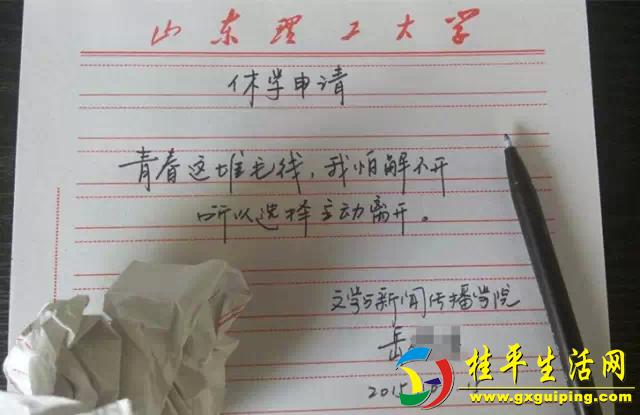 山东理工大学
休学申请
青春这堆毛线，我怕解不开
所以选择主动离开。
文学与新闻传播学院
岳
2015
桂平生活网
www.gxguiping.com